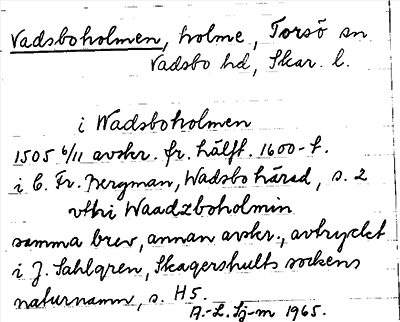 Vadsboholmen, holme, Torsö sn
Vadsbo hd, Skar. l.
i Wadsboholmen
1505 6/11 avskr. fr. hälft. 1600-t.
i C. Fr. Bergman, Wadsbo härad, s. 2
vthi Waadzboholmin
samma brev, annan avskr., avtryckt
i J. Sahlgren, Skagershults sockens
naturnamn, s. H5.
A.-L. Sj-m 1965.